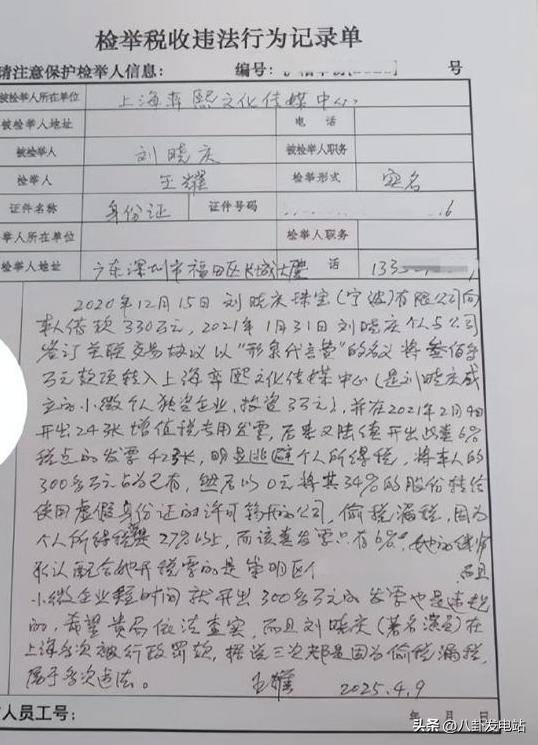 检举税收违法行为记录单
请注意保护检举人信息： 编号： 号
被检举人所在单位 上海弈熙文化传媒中心
被检举人地址 电 话
被检举人 刘晓庆 被检举人职务
检举人 王耀 检举形式 实名
证件名称 身份证 证件号码 6
举人所在单位 检举人职务
检举人地址 广东深圳市福田区长城大厦 话 133
2020年12月15日刘晓庆珠宝(宁波)有限公司向
本人借款330万元，2021年1月31日刘晓庆个人与公司
签订关联交易协议以“形象代言费”的名义将叁佰多
万元款项转入上海弈熙文化传媒中心(是刘晓庆成
立的小微个人独资企业，投资3万元)，并在2021年2月4日
开出24张增值税专用发票，后来又陆续开出此类6%
税点的发票42张，明显逃避个人所得税，将本人的
300多万元占为已有，然后以0元将其34%的股份转给
使用虚假身份证的许可 的公司，偷税漏税，因为
个人所得税 27%以上，而该类发票只有6%，她的律师
承认配合她开税票的是崇明区个 而且
小微企业短时间就开出300多万元的发票也是违规
的，希望贵局依法查实，而且刘晓庆(著名演员)在
上海多次被行政罚款，据说三次都是因为偷税漏税，
属于多次违法。 王耀 2025.4.9
人员工号： 年 月 日
头条 @八卦发电站